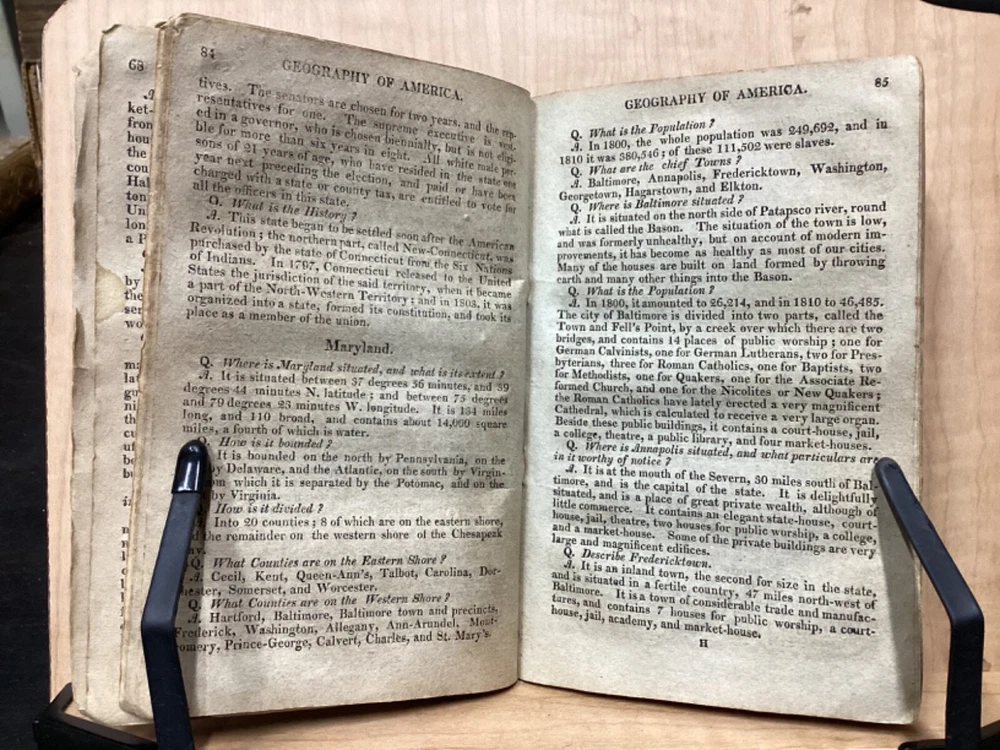 68
ket-
from
hou
the
cou
Hal
ton
Un
lon
a P
by
the
ser
wo
84
GEOGRAPHY OF AMERICA.
tives. The senators are chosen for two years, and the rep-
resentatives for one. The supreme executive is vest-
ed in a governor, who is chosen biennially, but is not eligi-
ble for more than six years in eight. All white male per-
sons of 21 years of age, who have resided in the state one
year next preceding the election, and paid or have been
charged with a state or county tax, are entitled to vote for
all the officers in this state.
Q. What is the History?
A. This state began to be settled soon after the American
Revolution; the northern part, called New-Connecticut, was
purchased by the state of Connecticut from the Six Nations
of Indians. In 1797, Connecticut released to the United
States the jurisdiction of the said territory, when it became
a part of the North-Western Territory; and in 1803, it was
organized into a state, formed its constitution, and took its
place as a member of the union.
Maryland.
Q. Where is Maryland situated, and what is its extent?
A. It is situated between 37 degrees 56 minutes, and 39
degrees 44 minutes N. latitude; and between 75 degrees
and 79 degrees 23 minutes W. longitude. It is 134 miles
long, and 110 broad, and contains about 14,000 square
miles, a fourth of which is water.
Q. How is it bounded?
It is bounded on the north by Pennsylvania, on the
by Delaware, and the Atlantic, on the south by Virgin-
om which it is separated by the Potomac, and on the
by Virginia.
How is it divided?
Into 20 counties; 8 of which are on the eastern shore,
the remainder on the western shore of the Chesapeak
Q. What Counties are on the Eastern Shore?
A. Cecil, Kent, Queen-Ann's, Talbot, Carolina, Dor-
hester, Somerset, and Worcester.
Q. What Counties are on the Western Shore?
A. Hartford, Baltimore, Baltimore town and precincts,
Frederick, Washington, Allegany, Ann-Arundel, Mont-
omery, Prince-George, Calvert, Charles, and St. Mary's.
85
GEOGRAPHY OF AMERICA.
Q. What is the Population?
A. In 1800, the whole population was 249,692, and in
1810 it was 380,546; of these 111,502 were slaves.
Q. What are the chief Towns?
A. Baltimore, Annapolis, Fredericktown, Washington,
Georgetown, Hagarstown, and Elkton.
Q. Where is Baltimore situated?
A. It is situated on the north side of Patapsco river, round
what is called the Bason. The situation of the town is low,
and was formerly unhealthy, but on account of modern im-
provements, it has become as healthy as most of our cities.
Many of the houses are built on land formed by throwing
earth and many other things into the Bason.
Q. What is the Population?
A. In 1800, it amounted to 26,214, and in 1810 to 46,485.
The city of Baltimore is divided into two parts, called the
Town and Fell's Point, by a creek over which there are two
bridges, and contains 14 places of public worship; one for
German Calvinists, one for German Lutherans, two for Pres-
byterians, three for Roman Catholics, one for Baptists, two
for Methodists, one for Quakers, one for the Associate Re-
formed Church, and one for the Nicolites or New Quakers;
the Roman Catholics have lately erected a very magnificent
Cathedral, which is calculated to receive a very large organ.
Beside these public buildings, it contains a court-house, jail,
a college, theatre, a public library, and four market-houses.
Q. Where is Annapolis situated, and what particulars are
in it worthy of notice?
A. It is at the mouth of the Severn, 30 miles south of Bal-
timore, and is the capital of the state. It is delightfully
situated, and is a place of great private wealth, although of
little commerce. It contains an elegant state-house, court-
house, jail, theatre, two houses for public worship, a college,
and a market-house. Some of the private buildings are very
large and magnificent edifices.
Q. Describe Fredericktown.
A. It is an inland town, the second for size in the state,
and is situated in a fertile country, 47 miles north-west of
Baltimore. It is a town of considerable trade and manufac-
tures, and contains 7 houses for public worship, a court-
house, jail, academy, and market-house.
H